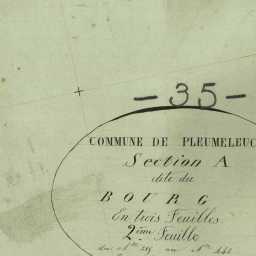 - 35 -
COMMUNE DE PLEUMELEUC
Section A
dite du
BOURG
En trois Feuilles
2ème Feuille
du N° au N°